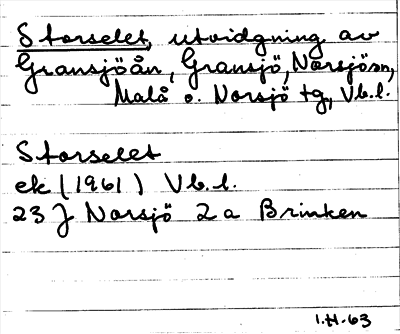 Storselet, utvidgning av
Gransjöån, Gransjö, Norsjösn,
Malå o. Norsjö tg, Vb.l.
Storselet
ek (1961) Vb.l.
23 J Norsjö 2a Brinken
1.H.63